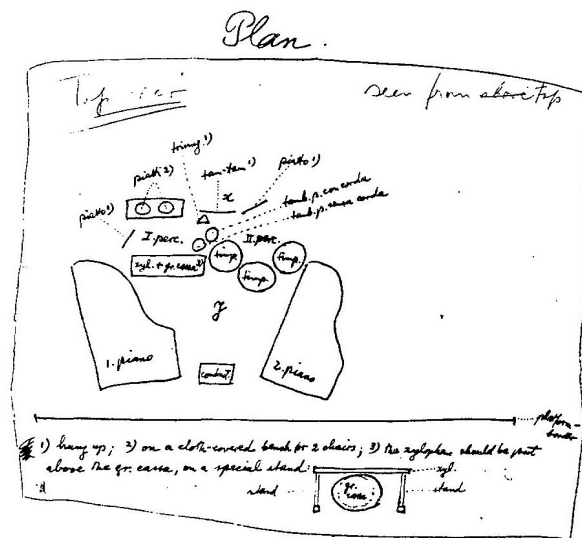 Plan.
Top view
seen from above top
triang. 1)
tam-tam 1)
piatto 1)
piatti 2)
x
tamb. p. con corda
tamb. p. senza corda
piatto 1)
I. perc.
II. perc.
xyl. + gr. cassa 3)
timp.
timp.
timp.
y
1. piano
2. piano
conduct.
platform-
border
1) hung up; 2) on a cloth-covered bench for 2 chairs; 3) the xylophone should be put
above the gr. cassa, on a special stand:
xyl.
stand
gr. cassa
stand